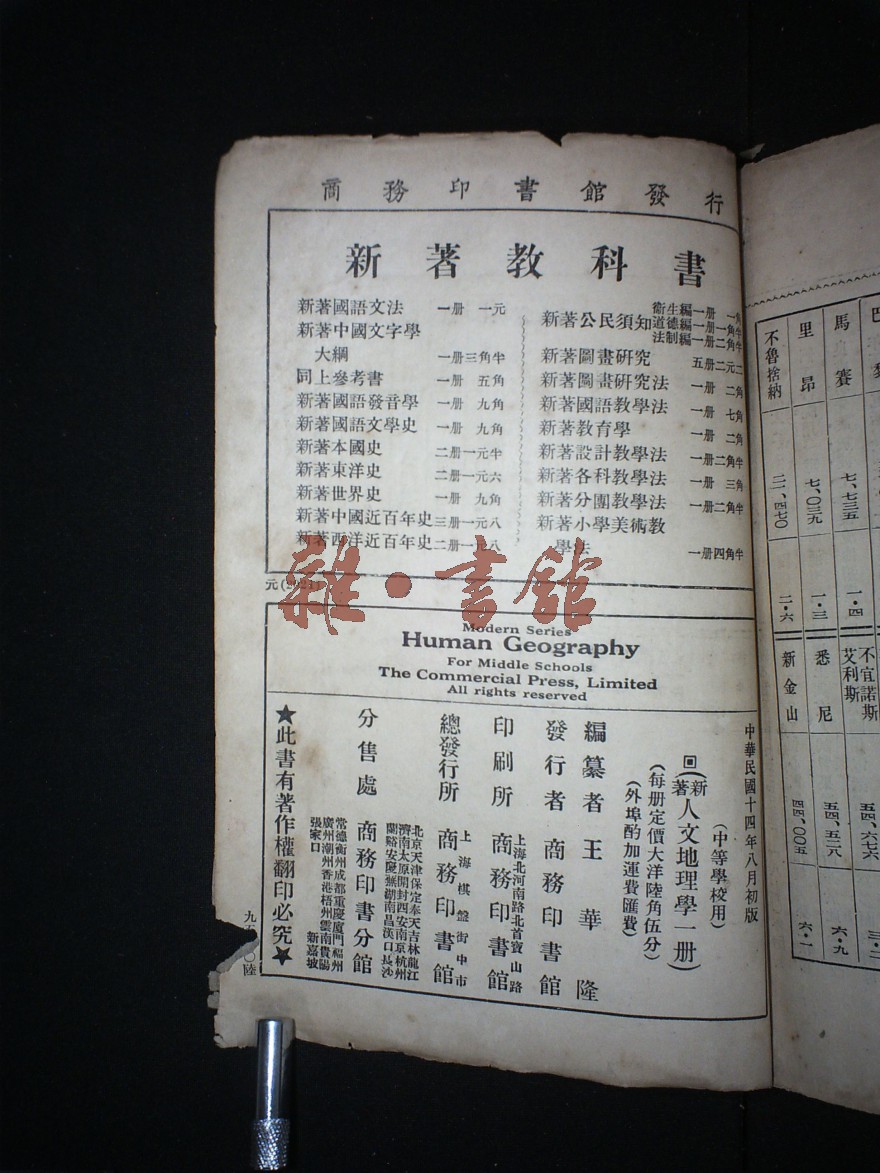 商務印書館發行
新著教科書
新著國語文法 一册 一元
新著中國文字學
大綱 一册三角半
同上參考書 一册 五角
新著國語發音學 一册 九角
新著國語文學史 一册 九角
新著本國史 二册一元半
新著東洋史 二册一元六
新著世界史 一册 九角
新著中國近百年史 三册一元八
新著西洋近百年史 二册一元八
新著公民須知
衞生編一册 一角
道德編一册一角半
法制編一册二角半
新著圖畫研究 五册二元二
新著圖畫研究法 一册 二角
新著國語教學法 一册 七角
新著教育學 一册 二角
新著設計教學法 一册二角半
新著各科教學法 一册 三角
新著分團教學法 一册二角半
新著小學美術教
學法 一册四角半
雜·書館
Modern Series
Human Geography
For Middle Schools
The Commercial Press, Limited
All rights reserved
中華民國十四年八月初版
(中等學校用)
回(新著人文地理學一册)
(每册定價大洋陸角伍分)
(外埠酌加運費匯費)
編纂者 王華隆
發行者 商務印書館
印刷所 上海北河南路北首寶山路
商務印書館
總發行所 上海棋盤街中市
商務印書館
分售處 商務印書分館
北京天津保定奉天吉林龍江
濟南太原開封西安南京杭州
蘭谿安慶蕪湖南昌漢口長沙
常德衡州成都重慶廈門福州
廣州潮州香港梧州雲南貴陽
張家口 新嘉坡
★此書有著作權翻印必究★
馬賽
七、七三五
一·四
不宜諾斯
艾利斯
五四、六七六
里昂
七、〇三九
一·三
悉尼
五四、五二八
六·九
不魯捨納
二一、四七〇
二·六
新金山
四四、〇〇五
六·一